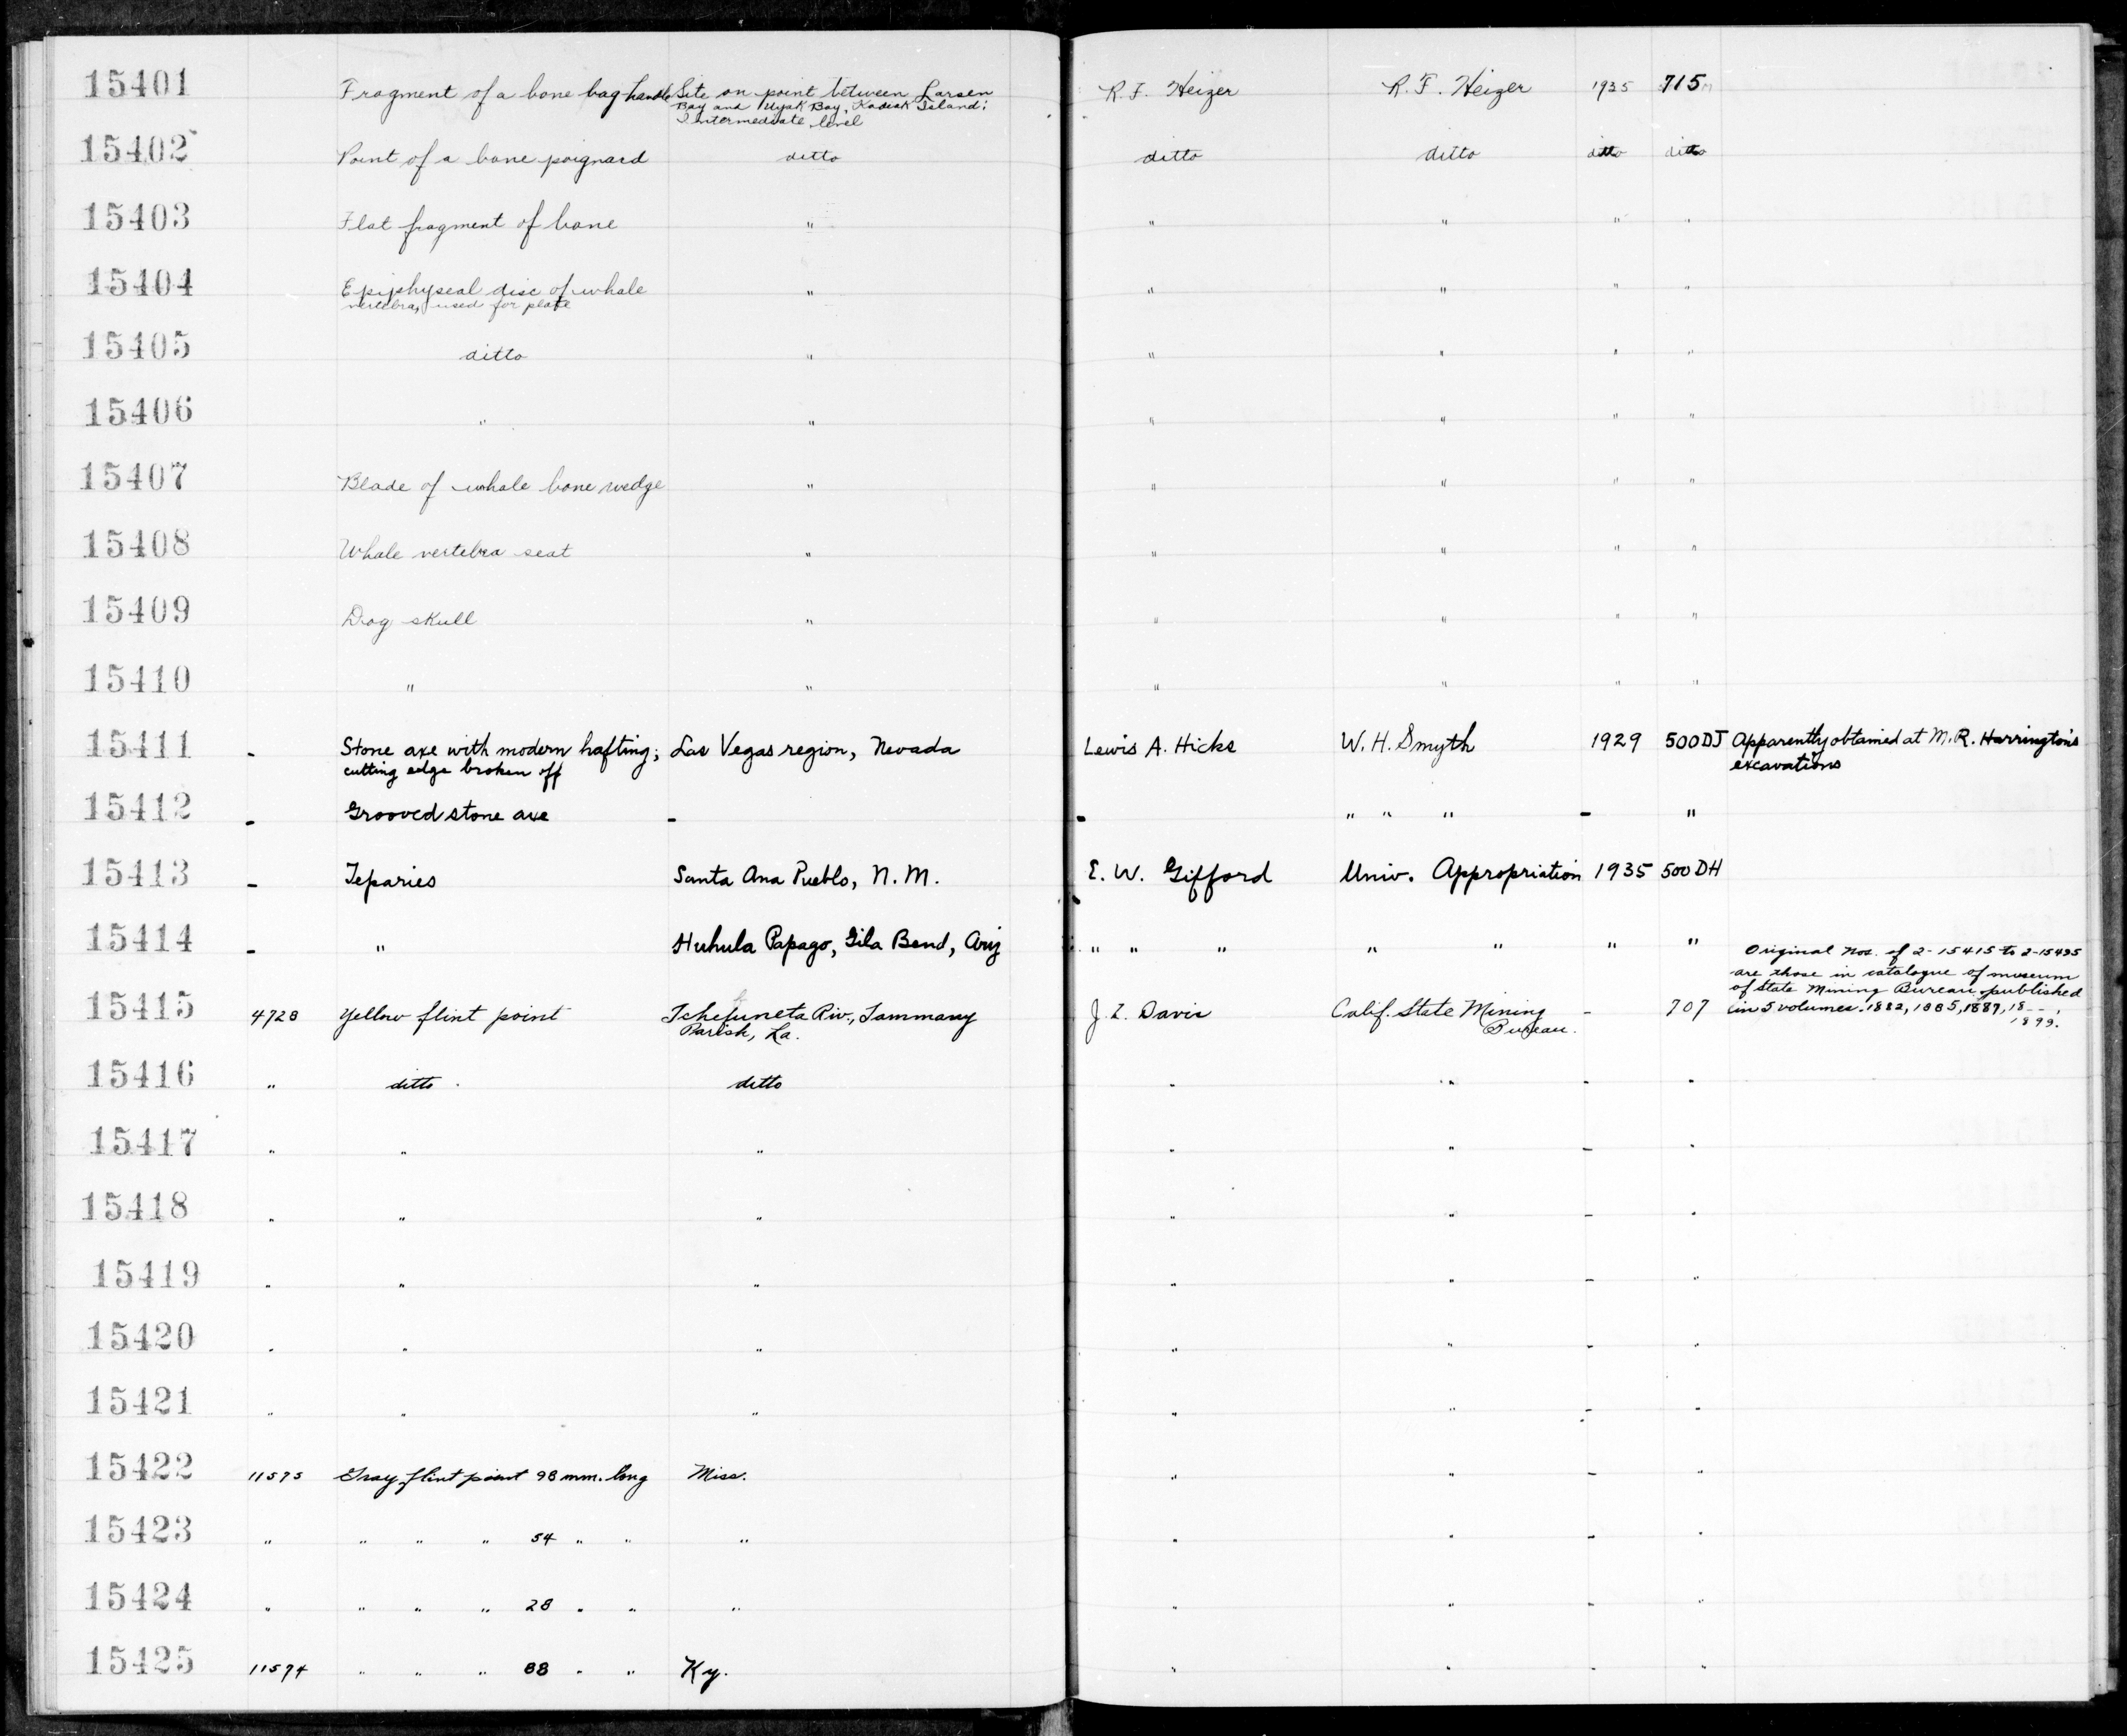 15401 Fragment of a bone bag handle Site on point between Larsen R. F. Heizer R. F. Heizer 1935 715
Bay and Uyak Bay, Kodiak Island;
Intermediate level
15402 Point of a bone poignard ditto ditto ditto ditto ditto
15403 Flat fragment of bone " " " " "
15404 Epiphyseal disc of whale " " " " "
vertebra, used for plate
15405 ditto " " " " "
15406 " " " " " "
15407 Blade of whale bone wedge " " " " "
15408 Whale vertebra seat " " " " "
15409 Dog skull " " " " "
15410 " " " " " "
15411 - Stone axe with modern hafting; Las Vegas region, Nevada Lewis A. Hicks W. H. Smyth 1929 500DJ Apparently obtained at M. R. Harrington's
cutting edge broken off excavations
15412 - Grooved stone axe - - " " " - "
15413 - Teparies Santa Ana Pueblo, N. M. E. W. Gifford Univ. Appropriation 1935 500 DH
15414 - " Huhula Papago, Gila Bend, Ariz " " " " " " "
Original nos. of 2-15415 to 2-15495
are those in catalogue of museum
of State Mining Bureau, published
15415 4728 Yellow flint point Tchefuneta Riv., Tammany J. Z. Davis Calif. State Mining - 707 in 5 volumes. 1882, 1885, 1887, 18--,
Parish, La. Bureau. 1899.
15416 " ditto ditto " " - "
15417 " " " " " - "
15418 " " " " " - "
15419 " " " " " - "
15420 " " " " " - "
15421 " " " " " - "
15422 11575 Gray flint point 98 mm. long Miss. " " - "
15423 " " " " 54 " " " " " - "
15424 " " " " 28 " " " " " - "
15425 11574 " " " 88 " " Ky. " " - "